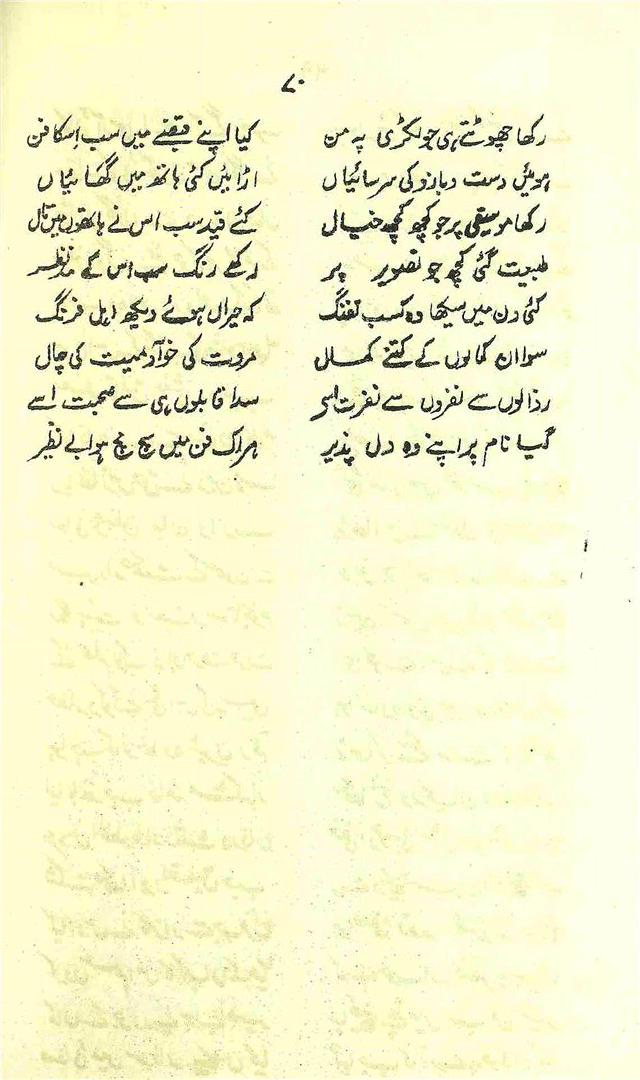 ۷۰
رکھا چھوٹتے ہی جو لکڑی پہ من کیا اپنے قبضے میں سب اسکا فن
ہوئیں دست و بازو کی سرسائیاں اڑائیں کئی ہاتھ میں گھائیاں
رکھا موسیقی پر جو کچھ کچھ خیال کئے قید سب اس نے ہاتھوں میں تال
طبیعت گئی کچھ جو تصویر پر رکھے رنگ سب اس کے مدنظر
کئی دن میں سیکھا وہ کسب تفنگ کہ حیراں ہوئے دیکھ اہل فرنگ
سوا ان کمالوں کے کتنے کمال مروت کی خو آدمیت کی چال
رذالوں سے نفروں سے نفرت اسے سدا قابلوں ہی سے صحبت اسے
گیا نام پر اپنے وہ دل پذیر ہر اک فن میں سچ مچ ہوا بے نظیر